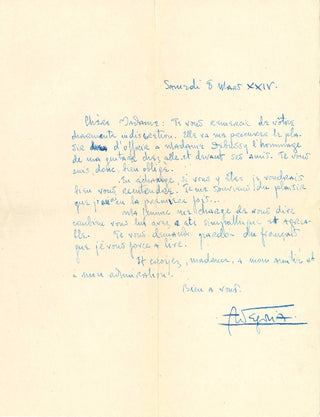 Samedi 8 Mars XXIV.
Chère Madame: Je vous remercie de votre
charmante indiscretion. Elle va me procurer le plai-
sir d'offrir a Madame Debussy l'hommage
de ma guitare chez elle et devant ses amis. Je vous
suis donc bien obligé.
En échange, si vous y êtes je voudrais
bien vous reentendre. Je me souviens du plaisir
que j'ai eu la première fois...
Ma femme me charge de vous dire
combien vous lui avez été simpathique et agrea-
ble. Je vous demande pardon du français
que je vous force a lire.
Et croyez, madame, a mon amitié et
a mon admiration.
Bien a vous.